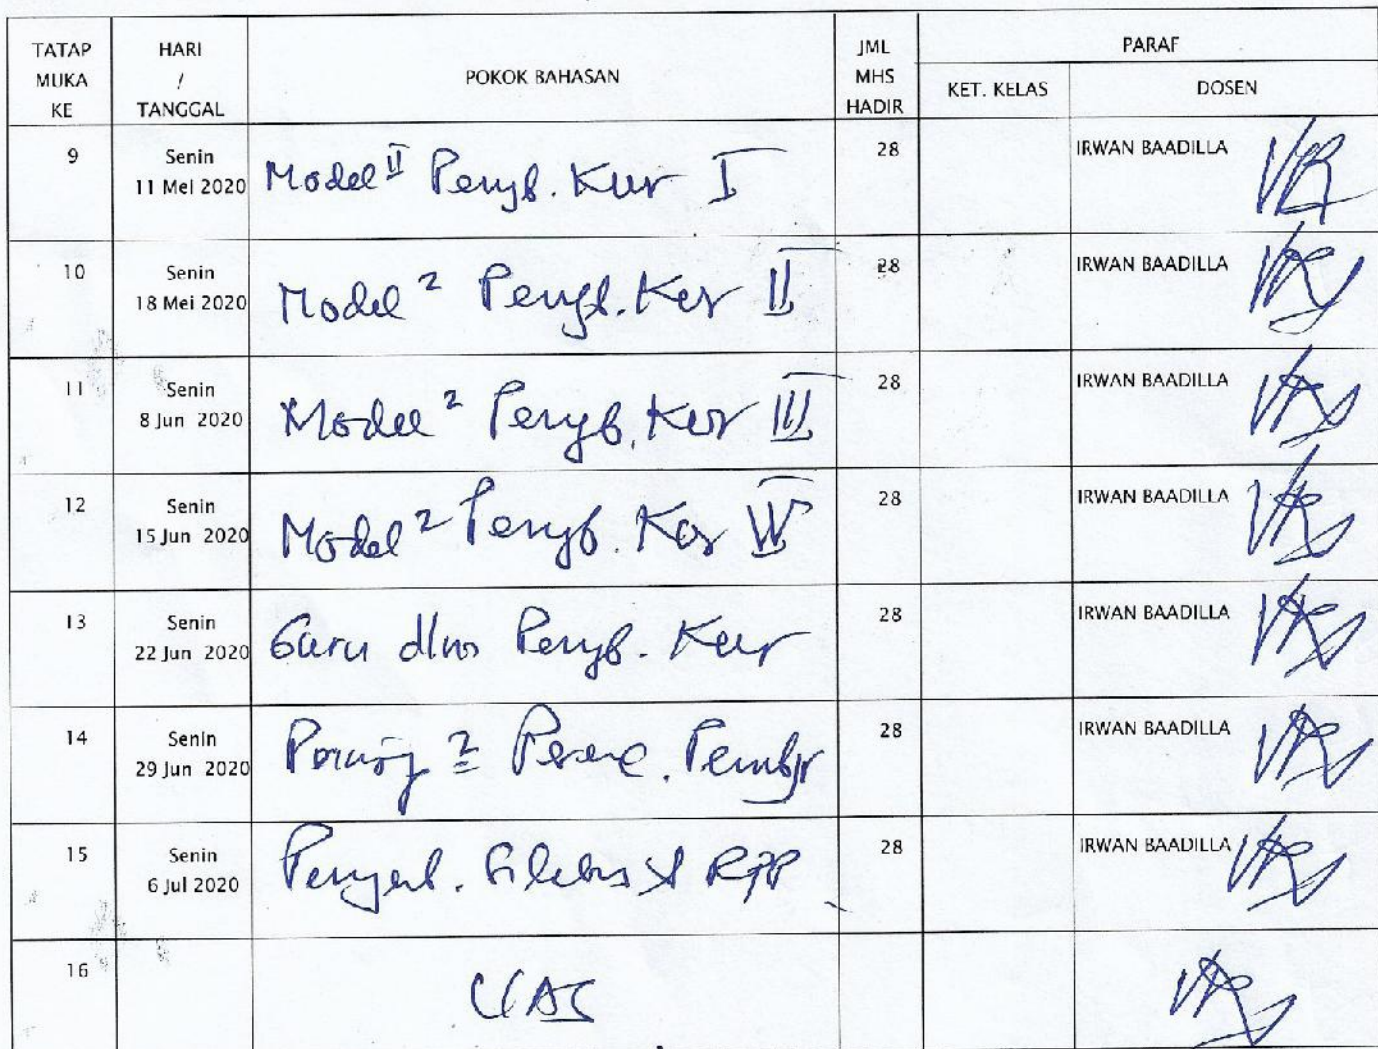 TATAP MUKA KE HARI / TANGGAL POKOK BAHASAN JML MHS HADIR PARAF
KET. KELAS DOSEN
9 Senin 11 Mei 2020 Model II Pengb. Kur I 28 IRWAN BAADILLA
10 Senin 18 Mei 2020 Model 2 Pengb. Kur II 28 IRWAN BAADILLA
11 Senin 8 Jun 2020 Model 2 Pengb. Kur III 28 IRWAN BAADILLA
12 Senin 15 Jun 2020 Model 2 Pengb. Kur IV 28 IRWAN BAADILLA
13 Senin 22 Jun 2020 Guru dlm Pengb. Kur 28 IRWAN BAADILLA
14 Senin 29 Jun 2020 2 Perenc. Pembjr 28 IRWAN BAADILLA
15 Senin 6 Jul 2020 Silabus & RPP 28 IRWAN BAADILLA
16 UAS